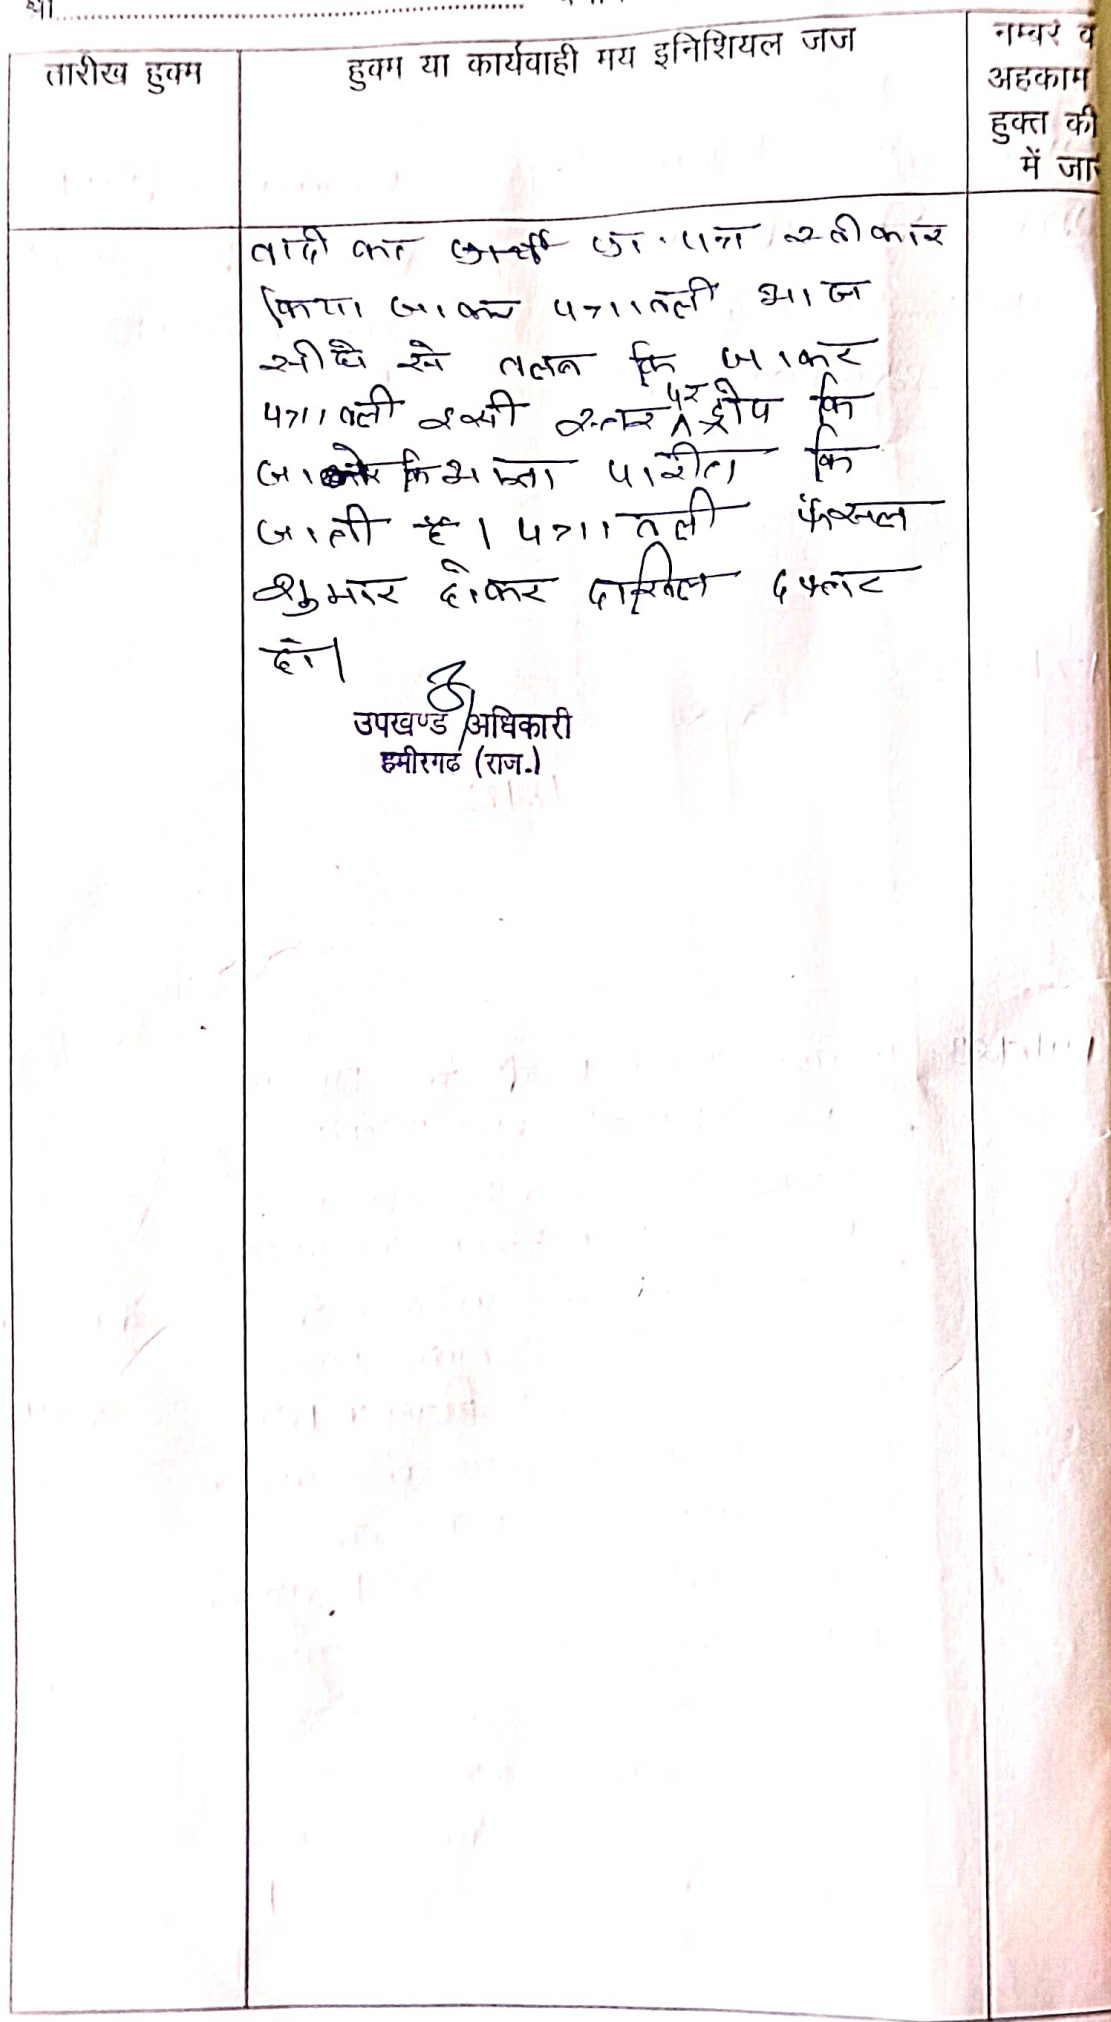 था
तारीख हुक्म
हुक्म या कार्यवाही मय इनिशियल जज
नम्बर व
अहकाम
हुक्त की
में जा
वादी का प्रा. पत्र स्वीकार
किया जाकर पत्रावली आज
सीधे से तलब कि जाकर
पत्रावली इसी स्तर पर ड्रोप कि
जा पारीत कि
जाती है। पत्रावली फैसल
शुमार होकर दाखिल दफ्तर
हो।
उपखण्ड अधिकारी
हमीरगढ (राज.)